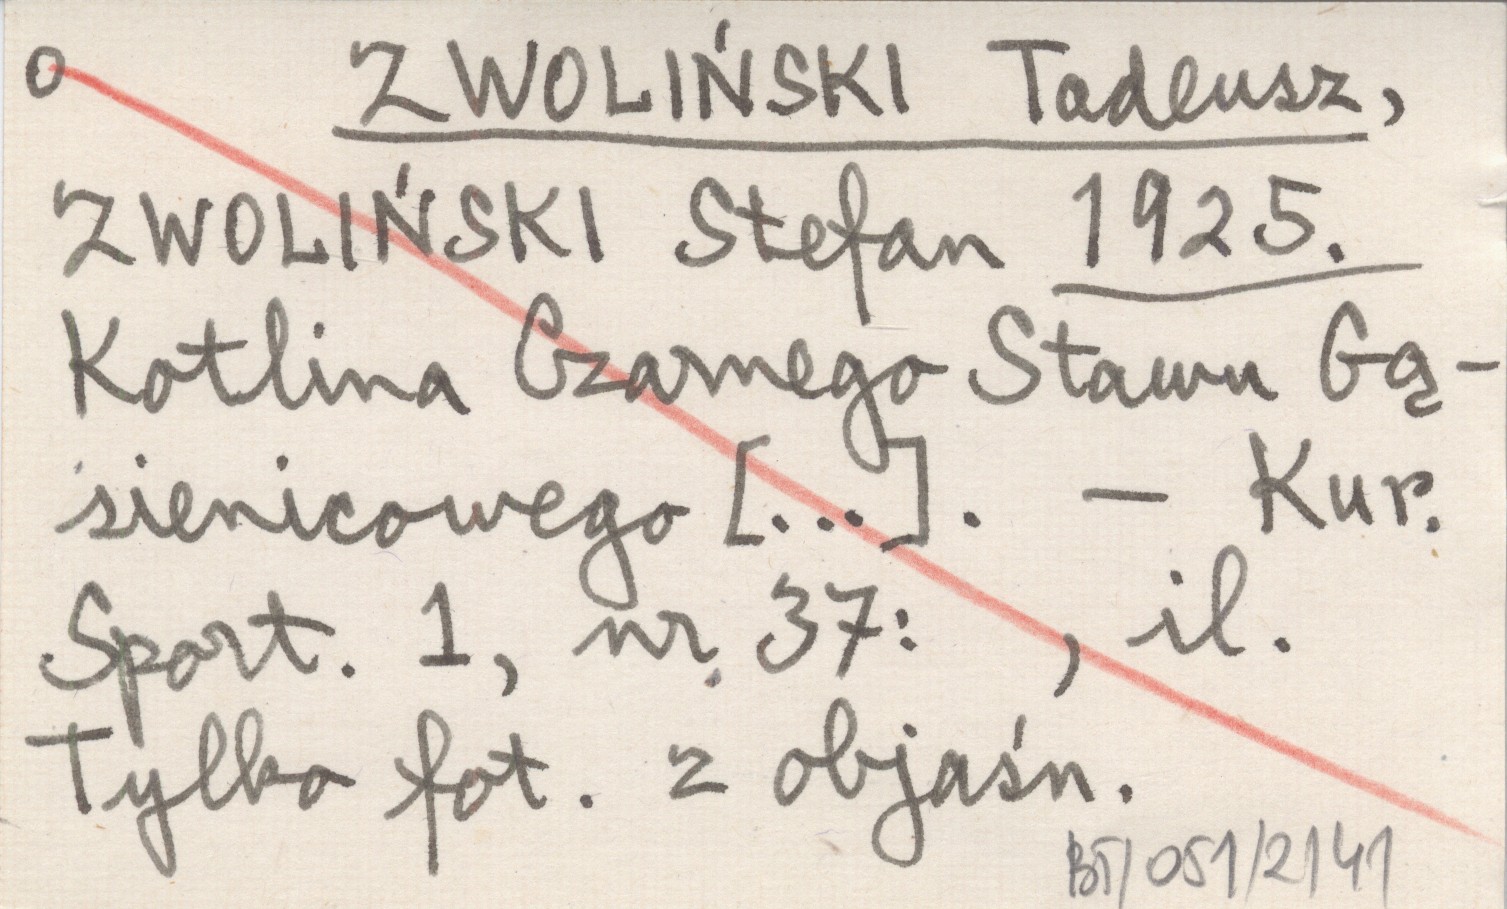 o ZWOLIŃSKI Tadeusz,
ZWOLIŃSKI Stefan 1925.
Kotlina Czarnego Stawu Gą-
sienicowego [...]. – Kur.
Sport. 1, nr 37: , il.
Tylko fot. z objaśn.
BT/051/2141